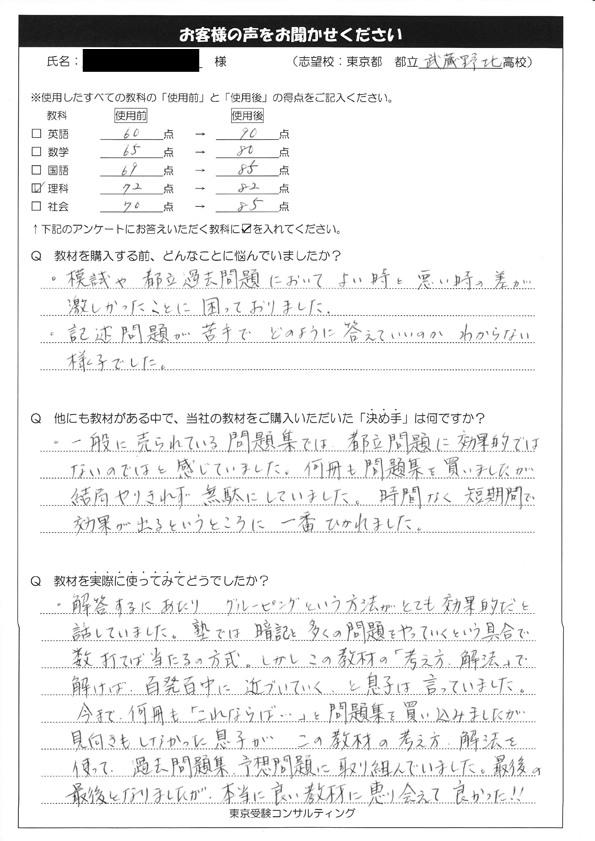 お客様の声をお聞かせください
氏名： 様 （志望校：東京都 都立 武蔵野北 高校）
※使用したすべての教科の「使用前」と「使用後」の得点をご記入ください。
教科 使用前 使用後
□ 英語 60 点 → 90 点
□ 数学 65 点 → 80 点
□ 国語 69 点 → 85 点
☑ 理科 72 点 → 82 点
□ 社会 70 点 → 85 点
↑下記のアンケートにお答えいただく教科に☑を入れてください。
Q 教材を購入する前、どんなことに悩んでいましたか？
・模試や 都立過去問題 において よい時と 悪い時の差が
激しかったことに 困っておりました.
・記述問題が 苦手で どのように 答えていいのか わからない
様子でした。
Q 他にも教材がある中で、当社の教材をご購入いただいた「決め手」は何ですか？
・一般に 売られている 問題集では 都立問題に 効果的では
ないのではと 感じていました。何冊も 問題集を 買いましたが
結局 やりきれず 無駄にしていました。時間なく 短期間で
効果が出るというところに 一番 ひかれました。
Q 教材を実際に使ってみてどうでしたか？
・解答するにあたり グルーピングという方法がとても 効果的だと
話していました。塾では 暗記と 多くの問題をやっていくという具合で
数打てば当たるの方式。しかし この教材の「考え方、解法」で
解けば、百発百中に 近づいていく、と 息子は 言っていました。
今まで、何冊も「これならば…」と 問題集を 買い込みましたが
見向きも しなかった 息子が この教材の 考え方、解法を
使って、過去問題集、予想問題に 取り組んでいました。最後の
最後となりましたが、本当に 良い教材に 恵り会えて 良かった!!
東京受験コンサルティング